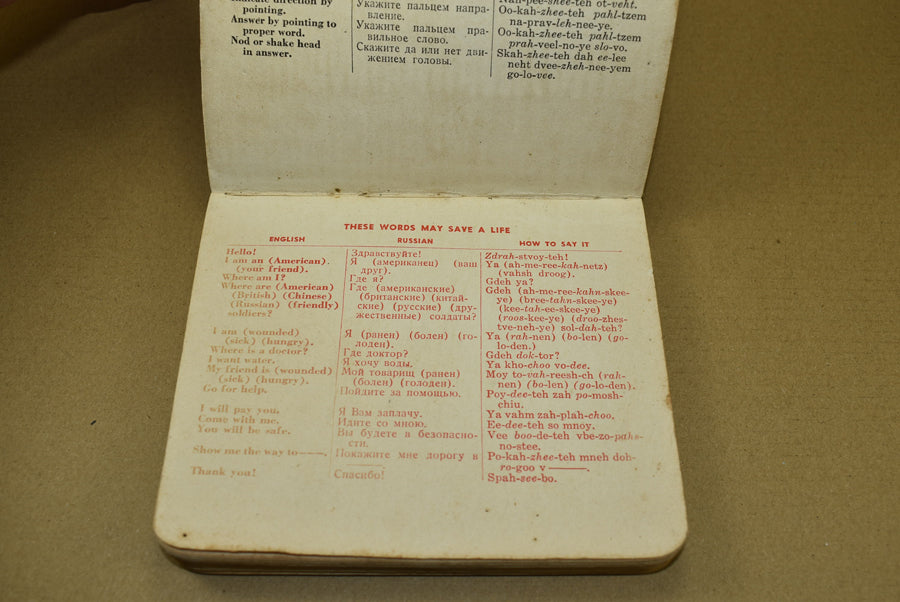 pointing.
Answer by pointing to
proper word.
Nod or shake head
in answer.
Укажите пальцем напра-
вление.
Укажите пальцем пра-
вильное слово.
Скажите да или нет дви-
жением головы.
Oo-kah-zhee-teh pahl-tzem
na-prav-leh-nee-ye.
Oo-kah-zhee-teh pahl-tzem
prah-veel-no-ye slo-vo.
Skah-zhee-teh dah ee-lee
neht dvee-zheh-nee-yem
go-lo-vee.
THESE WORDS MAY SAVE A LIFE
ENGLISH
Hello!
I am an (American).
(your friend).
Where am I?
Where are (American)
(British) (Chinese)
(Russian) (friendly)
soldiers?
I am (wounded)
(sick) (hungry).
Where is a doctor?
I want water.
My friend is (wounded)
(sick) (hungry).
Go for help.
I will pay you.
Come with me.
You will be safe.
Show me the way to——.
Thank you!
RUSSIAN
Здравствуйте!
Я (американец) (ваш
друг).
Где я?
Где (американские)
(британские) (китай-
ские) (русские) (дру-
жественные) солдаты?
Я (ранен) (болен) (го-
лоден).
Где доктор?
Я хочу воды.
Мой товарищ (ранен)
(болен) (голоден).
Пойдите за помощью.
Я Вам заплачу.
Идите со мною.
Вы будете в безопасно-
сти.
Покажите мне дорогу в
———.
Спасибо!
HOW TO SAY IT
Zdrah-stvoy-teh!
Ya (ah-me-ree-kah-netz)
(vahsh droog).
Gdeh ya?
Gdeh (ah-me-ree-kahn-skee-
ye) (bree-tahn-skee-ye)
(kee-tah-ee-skee-ye)
(roos-kee-ye) (droo-zhes-
tve-neh-ye) sol-dah-teh?
Ya (rah-nen) (bo-len) (go-
lo-den).
Gdeh dok-tor?
Ya kho-choo vo-dee.
Moy to-vah-reesh-ch (rah-
nen) (bo-len) (go-lo-den).
Poy-dee-teh zah po-mosh-
chiu.
Ya vahm zah-plah-choo.
Ee-dee-teh so mnoy.
Vee boo-de-teh vbe-zo-pahs-
no-stee.
Po-kah-zhee-teh mneh doh-
ro-goo v ———.
Spah-see-bo.